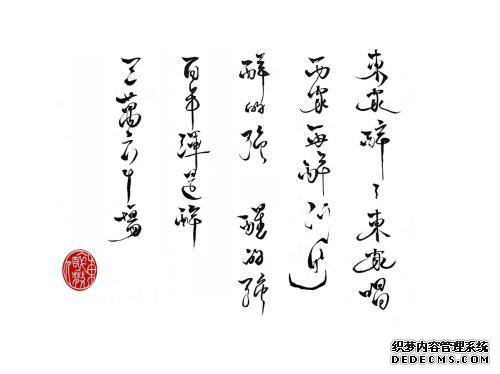 東家醉了東家唱
西家再醉何妨
醉的強 醒的強
百年渾是醉
三萬六千場
织梦内容管理系统
DEDECMS.COM